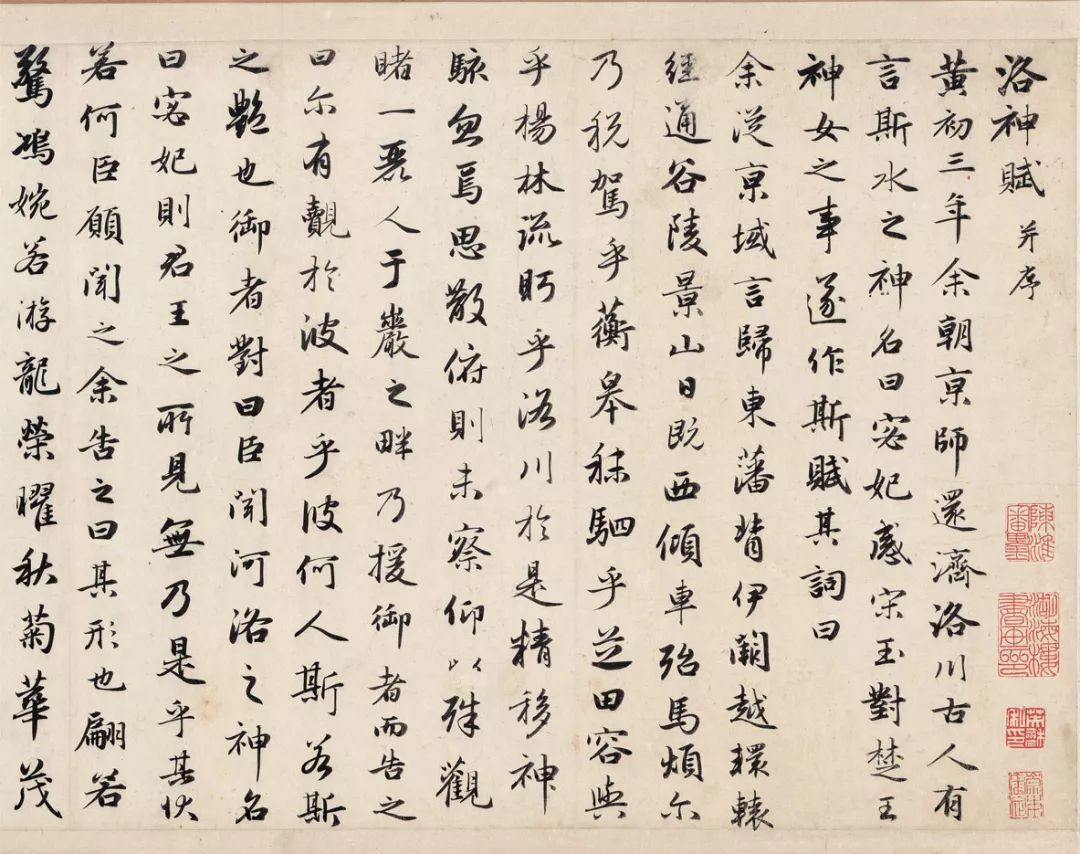 洛神賦 并序
黃初三年余朝亰師還濟洛川古人有
言斯水之神名曰宓妃感宋玉對楚王
神女之事遂作斯賦其詞曰
余從亰域言歸東藩背伊闕越轘轅
經通谷陵景山日既西傾車殆馬煩尓
乃稅駕乎蘅皋秣駟乎芝田容與
乎楊林流眄乎洛川於是精移神
駭忽焉思散俯則未察仰以殊觀
睹一麗人于巖之畔乃援御者而告之
曰尓有覿於彼者乎彼何人斯若斯
之艷也御者對曰臣聞河洛之神名
曰宓妃則君王之所見無乃是乎其狀
若何臣願聞之余告之曰其形也翩若
驚鴻婉若游龍榮曜秋菊華茂